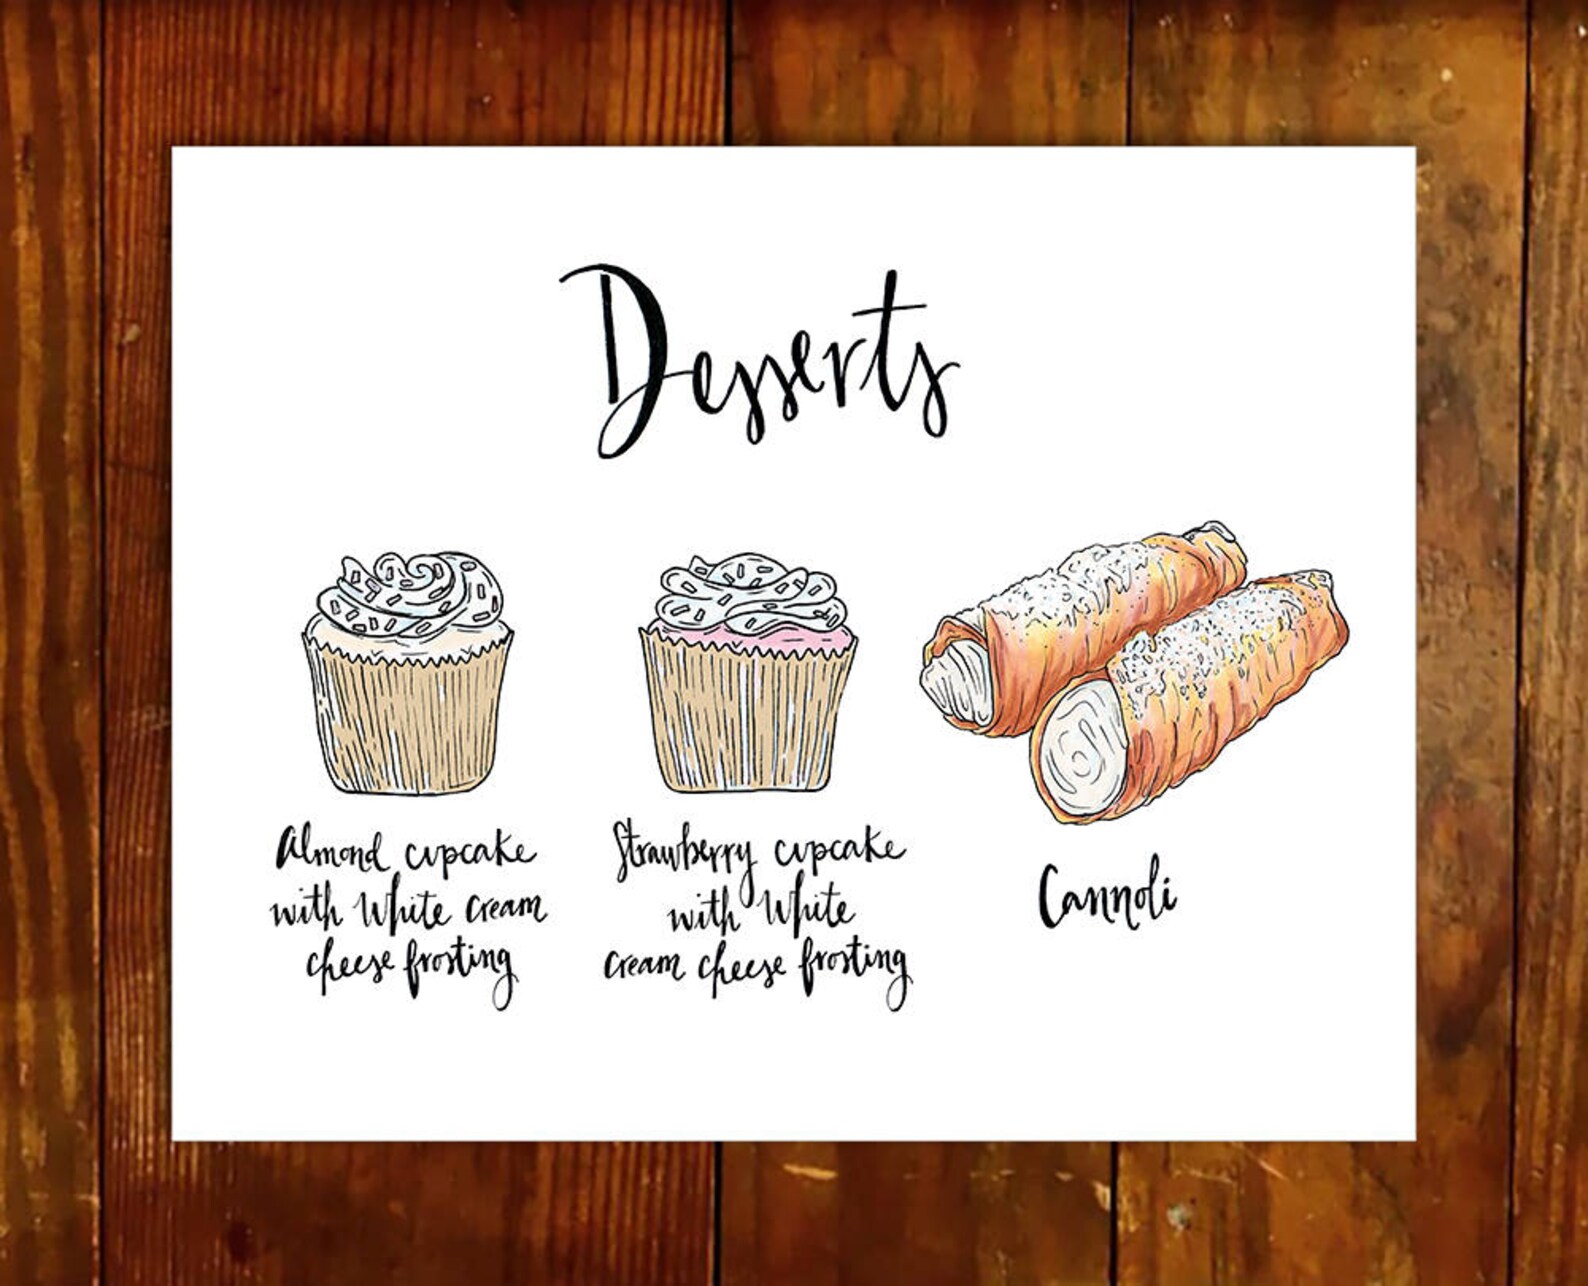 Desserts
Almond cupcake
with White cream
cheese frosting
Strawberry cupcake
with White
cream cheese frosting
Cannoli